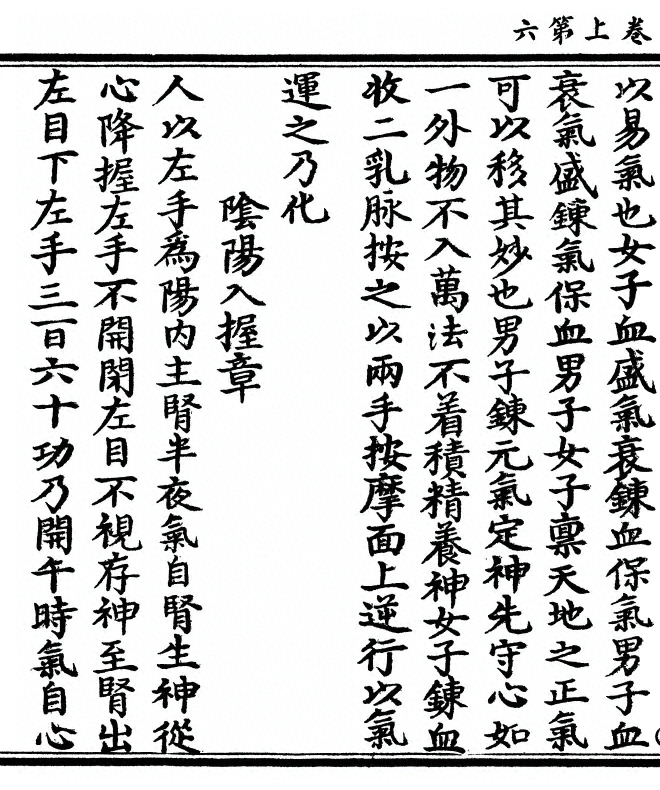 卷上第六
以易氣也女子血盛氣衰鍊血保氣男子血
衰氣盛鍊氣保血男子女子禀天地之正氣
可以移其妙也男子鍊元氣定神先守心如
一外物不入萬法不着積精養神女子鍊血
收二乳脉按之以兩手按摩面上逆行以氣
運之乃化
陰陽入握章
人以左手為陽内主腎半夜氣自腎生神從
心降握左手不開閉左目不視存神至腎出
左目下左手三百六十功乃開午時氣自心